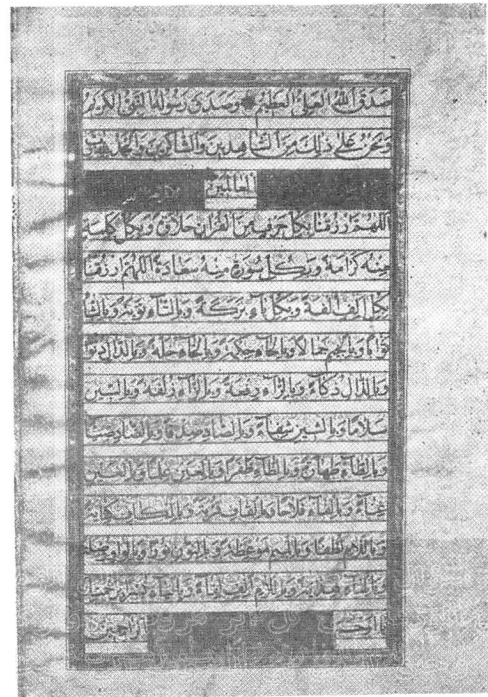 صدق الله العلي العظيم وصدق رسوله النبي الكريم
ونحن على ذلك من الشاهدين والشاكرين والحمد لله رب
العالمين
اللهم ارزقنا بكل حرف من القرآن حلاوة وبكل كلمة
منه كرامة وبكل سورة منه سعادة اللهم ارزقنا
بكل الف الفة وبكل باء بركة وبالتاء توبة وبالثاء
ثوابا وبالجيم جمالا وبالحاء حكمة وبالخاء خلة وبالدال دنوا
وبالذال ذكاء وبالراء رحمة وبالزاء زلفة وبالسين
سلاما وبالشين شفاء وبالصاد صدقا وبالضاد ضياء
وبالطاء طهارة وبالظاء ظفرا وبالعين علما وبالغين
غناء وبالفاء فلاحا وبالقاف قربة وبالكاف كفاية
وباللام لطفا وبالميم موعظة وبالنون نورا وبالواو وصلة
وبالهاء هداية وبلام الف لقاء وبالياء يسرا برحمتك
يا ارحم الراحمين